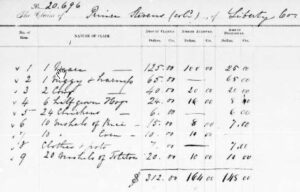 No 20,696
The Claim of Prince Stevens (col'd), of Liberty Co
No. of Item. NATURE OF CLAIM. Dollars. Cts. Dollars. Cts. Dollars. Cts.
1 1 125.00 100 00 25.00
2 1 Buggy & Harness 65.00 65.00
3 2 Cows 40.00 20 00 20.00
4 6 Hogs 24.00 16 00 8 00
5 24 Chickens 6.00
6 10 Bushels of Rice 15.00 8 00 7.00
7 10 " Corn 10.00 10 00
8 Clothes & pots
9 20 Bushels of Potatoes 20.00 10 00 10.00
$ 312.00 164 00 148.00